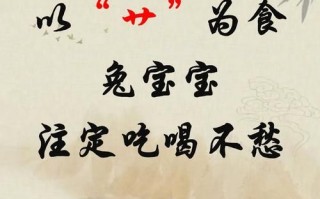 以“艹”为食
兔宝宝
注定吃喝不愁